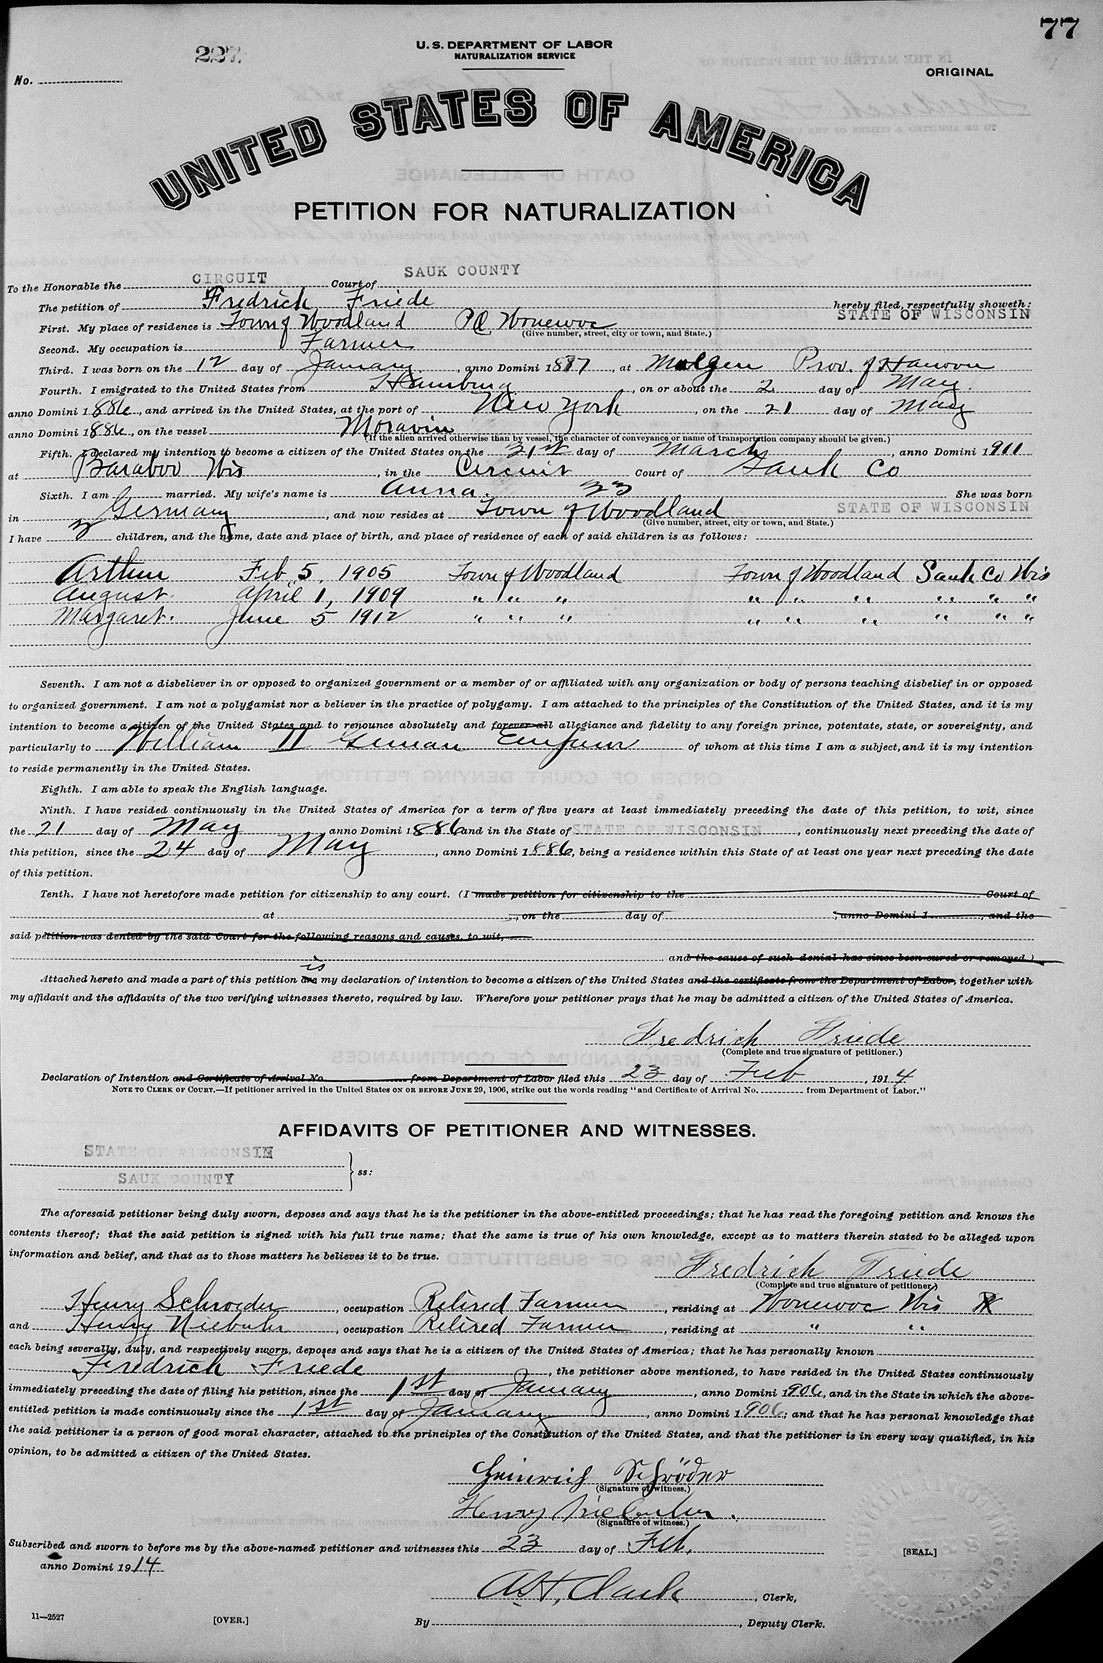 77
227
U. S. DEPARTMENT OF LABOR
NATURALIZATION SERVICE
No.
ORIGINAL
UNITED STATES OF AMERICA
PETITION FOR NATURALIZATION
To the Honorable the CIRCUIT Court of SAUK COUNTY
The petition of Fredrick Friede hereby filed, respectfully showeth:
First. My place of residence is Town of Woodland P.O. Wonewoc STATE OF WISCONSIN
(Give number, street, city or town, and State.)
Second. My occupation is Farmer
Third. I was born on the 12 day of January, anno Domini 1887, at Prov. of Hanovr
Fourth. I emigrated to the United States from Hamburg, on or about the 2 day of May
anno Domini 1886, and arrived in the United States, at the port of New York, on the 21 day of May
anno Domini 1886, on the vessel Moravia
(If the alien arrived otherwise than by vessel, the character of conveyance or name of transportation company should be given.)
Fifth. I declared my intention to become a citizen of the United States on the 31st day of March, anno Domini 1911
at Baraboo Wis, in the Circuit Court of Sauk Co
Sixth. I am married. My wife's name is Anna. She was born
in Germany, and now resides at Town of Woodland STATE OF WISCONSIN
(Give number, street, city or town, and State.)
I have 3 children, and the name, date and place of birth, and place of residence of each of said children is as follows:
Arthur Feb 5, 1905 Town of Woodland Town of Woodland Sauk Co Wis
August. April 1, 1909 " " " " " " " " "
Margaret. June 5 1912 " " " " " " " " "
Seventh. I am not a disbeliever in or opposed to organized government or a member of or affiliated with any organization or body of persons teaching disbelief in or opposed
to organized government. I am not a polygamist nor a believer in the practice of polygamy. I am attached to the principles of the Constitution of the United States, and it is my
intention to become a citizen of the United States and to renounce absolutely and forever all allegiance and fidelity to any foreign prince, potentate, state, or sovereignty, and
particularly to William II German Emperor of whom at this time I am a subject, and it is my intention
to reside permanently in the United States.
Eighth. I am able to speak the English language.
Ninth. I have resided continuously in the United States of America for a term of five years at least immediately preceding the date of this petition, to wit, since
the 21 day of May anno Domini 1886 and in the State of STATE OF WISCONSIN, continuously next preceding the date of
this petition, since the 24 day of May, anno Domini 1886, being a residence within this State of at least one year next preceding the date
of this petition.
Tenth. I have not heretofore made petition for citizenship to any court. (I made petition for citizenship to the Court of
at , on the day of , anno Domini 1 , and the
said petition was denied by the said Court for the following reasons and causes, to wit,
and the cause of such denial has since been cured or removed.)
is
Attached hereto and made a part of this petition are my declaration of intention to become a citizen of the United States and the certificate from the Department of Labor, together with
my affidavit and the affidavits of the two verifying witnesses thereto, required by law. Wherefore your petitioner prays that he may be admitted a citizen of the United States of America.
Fredrich Friede
(Complete and true signature of petitioner.)
Declaration of Intention and Certificate of Arrival No. from Department of Labor filed this 23 day of Feb, 1914
NOTE TO CLERK OF COURT.—If petitioner arrived in the United States ON OR BEFORE JUNE 29, 1906, strike out the words reading "and Certificate of Arrival No. from Department of Labor."
AFFIDAVITS OF PETITIONER AND WITNESSES.
STATE OF WISCONSIN
ss:
SAUK COUNTY
The aforesaid petitioner being duly sworn, deposes and says that he is the petitioner in the above-entitled proceedings; that he has read the foregoing petition and knows the
contents thereof; that the said petition is signed with his full true name; that the same is true of his own knowledge, except as to matters therein stated to be alleged upon
information and belief, and that as to those matters he believes it to be true.
Fredrich Friede
(Complete and true signature of petitioner.)
Henry Schroeder, occupation Retired Farmer, residing at Wonewoc Wis
and Henry Niebuhr, occupation Retired Farmer, residing at " "
each being severally, duly, and respectively sworn, deposes and says that he is a citizen of the United States of America; that he has personally known
Fredrich Friede, the petitioner above mentioned, to have resided in the United States continuously
immediately preceding the date of filing his petition, since the 1st day of January, anno Domini 1906, and in the State in which the above-
entitled petition is made continuously since the 1st day of January, anno Domini 1906; and that he has personal knowledge that
the said petitioner is a person of good moral character, attached to the principles of the Constitution of the United States, and that the petitioner is in every way qualified, in his
opinion, to be admitted a citizen of the United States.
Heinrich Schröder
(Signature of witness.)
Henry Niebuhr.
(Signature of witness.)
Subscribed and sworn to before me by the above-named petitioner and witnesses this 23 day of Feb.
[SEAL.]
anno Domini 1914
A.H. Clark, Clerk,
11—2527
[OVER.]
By , Deputy Clerk.